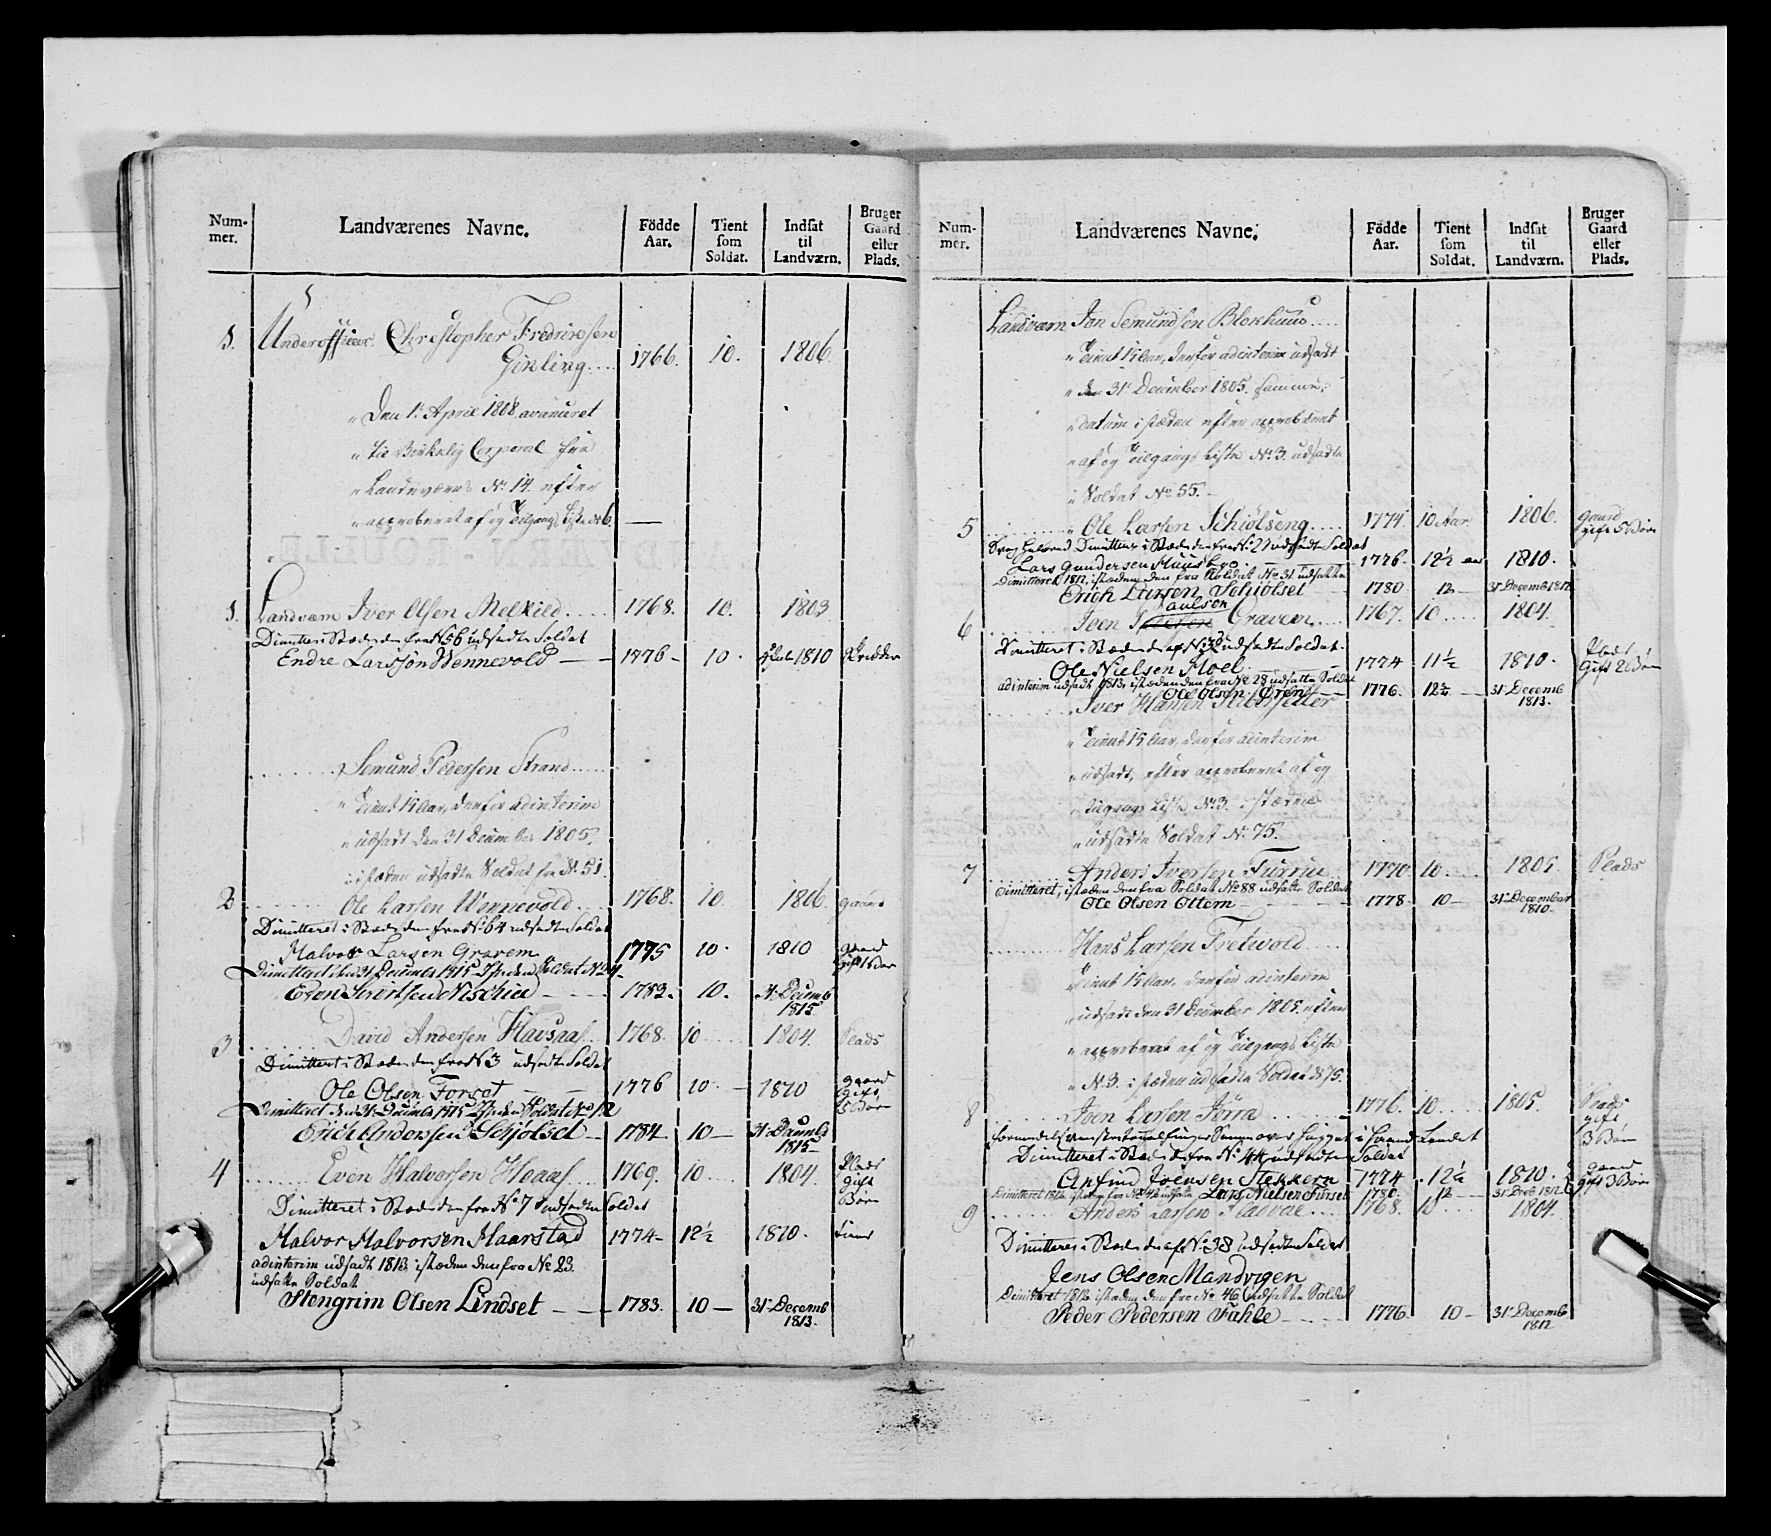 Num-mer. Landværenes Navne. Födde Aar. Tient som Soldat. Indsat til Landværn. Bruger Gaard eller Plads.
1. Underofficier Christopher Fredrichsen
Ginling 1766. 10. 1806.
" Den 1. April 1808 avanceret
" til Virkelig Corporal fra
" Landeværns No 14. efter
" approberet af og Tilgangs Liste No 6.
1. Landværn Iver Olsen Melkild 1768. 10. 1803
Dimitteret i Stæden den fra No 56 udsadte Soldat
Endre Larssön Wennevold 1776 10 1810
Semund Pedersen Strand
" Tient 15 Aar, derfor adinterim
" udsadt den 31 December 1805.
" i stæden udsadte Soldat fra No 51.
2 Ole Larsen Wennevold 1768. 10 1806. gaard
Dimitteret i Stæden den fra No 64 udsadte Soldat
Halvor Larsen Gravem 1775 10 1810 gaard
Even Sivertsen 1783. 10. December 1815
3 David Andersen Havsaas 1768. 10 1804. Plads
Dimitteret i Stæden den fra No 3 udsadte Soldat
Ole Olsen Forset 1776 10 1810 gaard Gift
Dimitteret den 31 December 1815 Soldat No 12
Erich Andersen Schjölset 1784 10 31 December 1815
4 Even Halvorsen Hoaas 1769. 10 1804. Plads gift Börn
Dimitteret i Stæden den fra No 7 udsadte Soldat
Halvor Halvorsen Haarstad 1774 12½ 1810.
adinterim udsadt 1813 i stæden den fra No 23.
udsatte Soldat
Stengrim Olsen Lindset 1783. 10 31 Decemb 1813.
Num-mer. Landværenes Navne. Födde Aar. Tient som Soldat. Indsat til Landværn. Bruger Gaard eller Plads.
Landværn Jon Semundsen Blokhuus
" Tient 15 Aar, derfor adinterim udsadt
" den 31 December 1805. samme
" datum i stæden efter approberet
" af og Tilgangs Liste No 3. udsadte
" Soldat No 55.
5 " Ole Larsen Schiölseng 1774. 10 Aar 1806. gaard gift 5 Börn
Dimitteret i Stæden den fra No 21 udsadte Soldat
Lars Gundersen Muusbro 1776. 12½ 1810.
Dimitteret 1812 i stæden den fra Soldat No 31 udsatte
Erich Larsen Schiölset 1780 12 31 Decemb 1812
6 Joen Paulsen Gravem 1767. 10 1804.
Dimitteret i Stæden den af No 32 udsadte Soldat
Ole Nielsen Moel 1774 11½ 1810. Plads Gift 2 Börn
adinterim udsadt 1813, i stæden den fra No 28 udsatte Soldat
Ole Olsen Ören 1776. 12½ 31 Decemb 1813.
Iver Hansen
" Tient 15 Aar, derfor adinterim
" udsadt, efter approberet af og
" Tilgangs Liste No 3. i stæden
" udsadte Soldat No 75.
7 Anders Iversen Furrue 1770. 10. 1805 Plads
Dimitteret, i stæden den fra Soldat No 88 udsatte Soldat
Ole Olsen Ottem 1778 10 31 December 1810.
Hans Larsen Tretvold
" Tient 15 Aar, derfor adinterim
" udsadt den 31 December 1805. efter
" approberet af og Tilgangs Liste
" No 3. i stæden udsadte Soldat No 75.
8 Joen Larsen 1776. 10 1805. Plads gift 3 Börn
Dimitteret i Stæden den fra No 44 udsadte Soldat
Anfind Joensen Stekkern 1774 12½ 1810. gaard gift 3 Börn
Dimitteret 1812 Lars Nielsen Furset 1780. 12 31 Decb 1812
9 Anders Larsen 1768. 10 1804.
Dimitteret i Stæden den af No 38 udsadte Soldat
Jens Olsen Mandvigen
Dimitteret 1812 i stæden den fra No 46 udsatte Soldat
Peder Pedersen Fahle 1776. 10 31 Decemb 1812